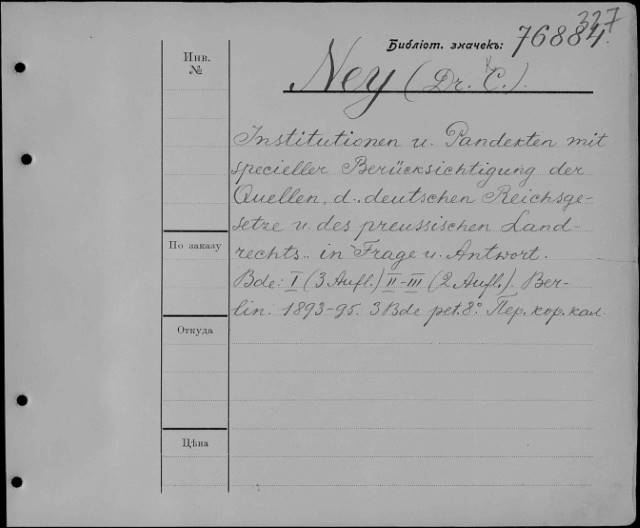 327
Библіот. значекъ: 76884.
Инв.
№
Ney (Dr. C.).
Institutionen u. Pandekten mit
specieller Berücksichtigung der
Quellen, d. deutschen Reichsge-
setze u. des preussischen Land-
По заказу
rechts.. in Frage u. Antwort.
Bde: I (3 Aufl.) II-III (2 Aufl.). Ber-
lin. 1893-95. 3 Bde pet. 8º. Пер. кор. кал.
Откуда
Цѣна